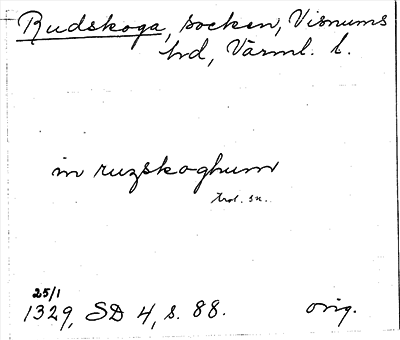 Rudskoga, socken, Visnums
hd, Värml. l.
in ruzskoghum
25/1
1329, SD 4, s. 88. orig.